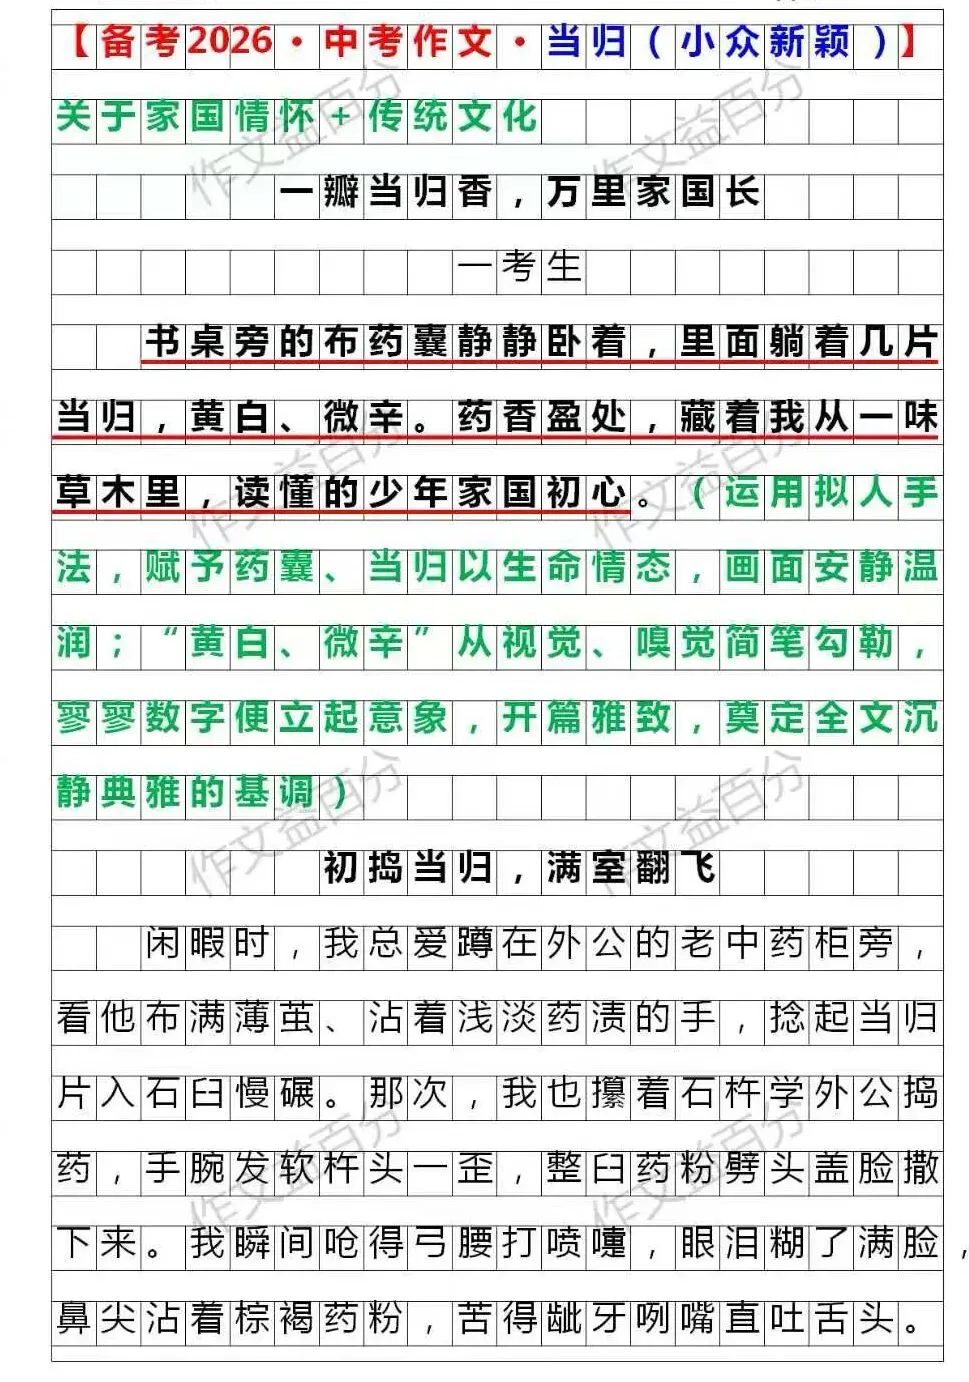 【备考2026·中考作文·当归（小众新颖）】
关于家国情怀+传统文化
一瓣当归香，万里家国长
一考生
书桌旁的布药囊静静卧着，里面躺着几片
当归，黄白、微辛。药香盈处，藏着我从一味
草木里，读懂的少年家国初心。（运用拟人手
法，赋予药囊、当归以生命情态，画面安静温
润；“黄白、微辛”从视觉、嗅觉简笔勾勒，
寥寥数字便立起意象，开篇雅致，奠定全文沉
静典雅的基调）
初捣当归，满室翻飞
闲暇时，我总爱蹲在外公的老中药柜旁，
看他布满薄茧、沾着浅淡药渍的手，捻起当归
片入石臼慢碾。那次，我也攥着石杵学外公捣
药，手腕发软杵头一歪，整臼药粉劈头盖脸撒
下来。我瞬间呛得弓腰打喷嚏，眼泪糊了满脸，
鼻尖沾着棕褐药粉，苦得龇牙咧嘴直吐舌头。
作文益百分
作文益百分
作文益百分
作文益百分
作文益百分
作文益百分
作文益百分
作文益百分